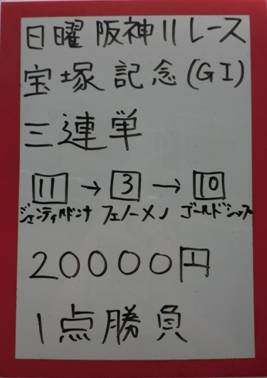 日曜阪神11レース
宝塚記念(GI)
三連単
11→3→10
ジェンティルドンナ フェノーメノ ゴールドシップ
20000円
1点勝負